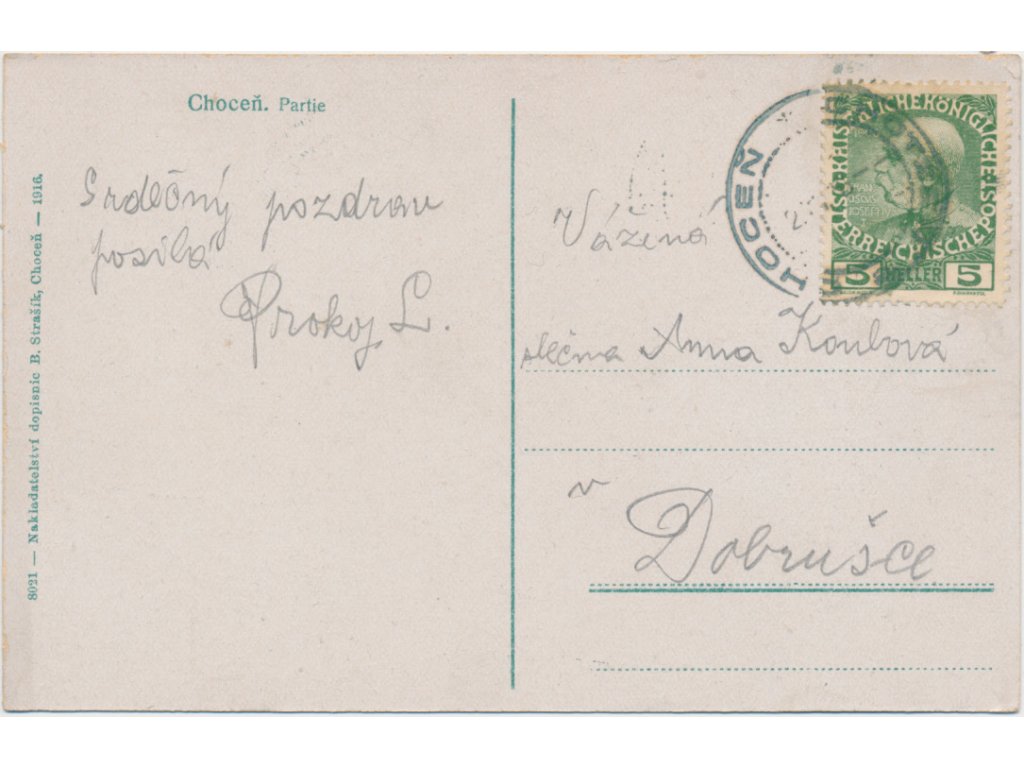 Choceň. Partie
Srdečný pozdrav
posílá
Prokop L.
8021 — Nakladatelství dopisnic B. Strašík, Choceň — 1916.
Vážená
slečna Anna Koubová
v
Dobrušce
HOCEŇ
KAISERLICHE KÖNIGLICHE
ÖSTERREICHISCHE POST
5 HELLER 5